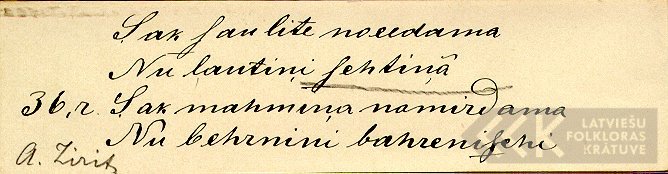 Sak saulite noeedama
Nu ļautiņi sehtiņâ
36, r. Sak mahmeņa nomirdama
Nu behrniņi bahrenischi
A. Zirit
LATVIEŠU
FOLKLORAS
KRĀTUVE